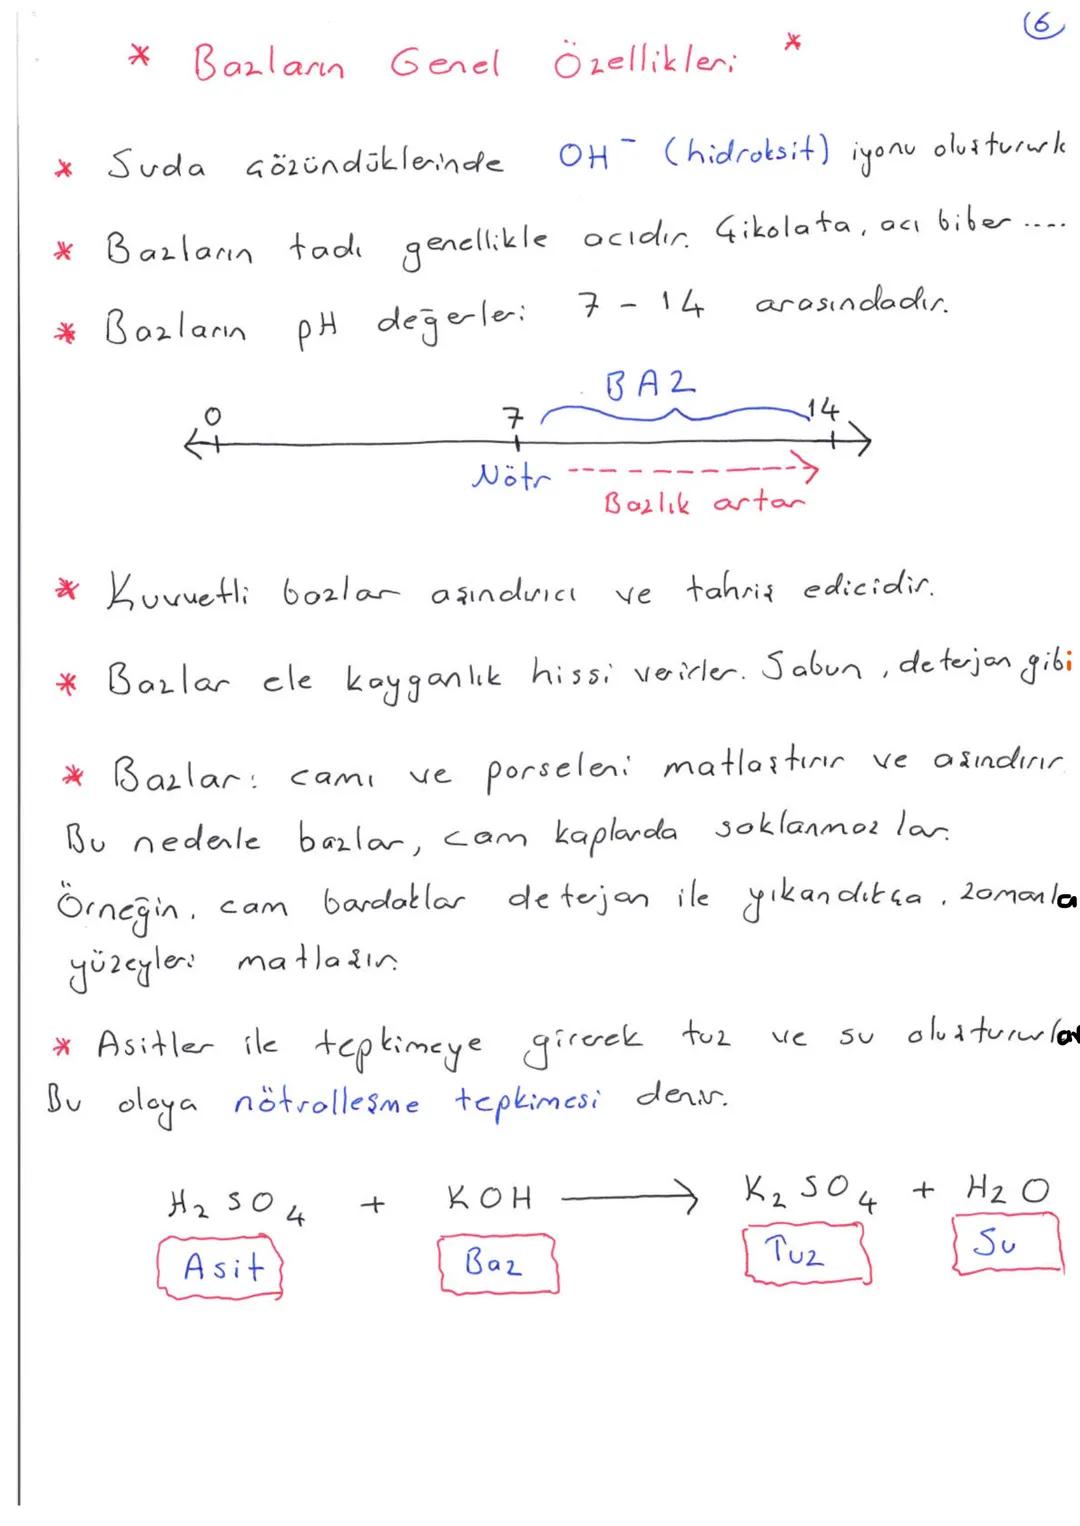 6
* Bazların Genel Özellikleri *
* Suda çözündüklerinde OH⁻ (hidroksit) iyonu oluştururlar
* Bazların tadı genellikle acıdır. Çikolata, acı biber ....
* Bazların pH değerleri 7 - 14 arasındadır.
BAZ
0 7 14
Nötr
Bazlık artar
* Kuvvetli bazlar aşındırıcı ve tahriş edicidir.
* Bazlar ele kayganlık hissi verirler. Sabun, deterjan gibi
* Bazlar: camı ve porseleni matlaştırır ve aşındırır.
Bu nedenle bazlar, cam kaplarda saklanmazlar.
Örneğin, cam bardaklar detejan ile yıkandıkça, zamanla
yüzeyleri matlaşır.
* Asitler ile tepkimeye girerek tuz ve su oluştururlar
Bu olaya nötralleşme tepkimesi denir.
H₂SO₄ + KOH → K₂SO₄ + H₂O
Asit Baz Tuz Su